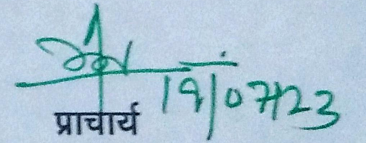 19/07/23
प्राचार्य